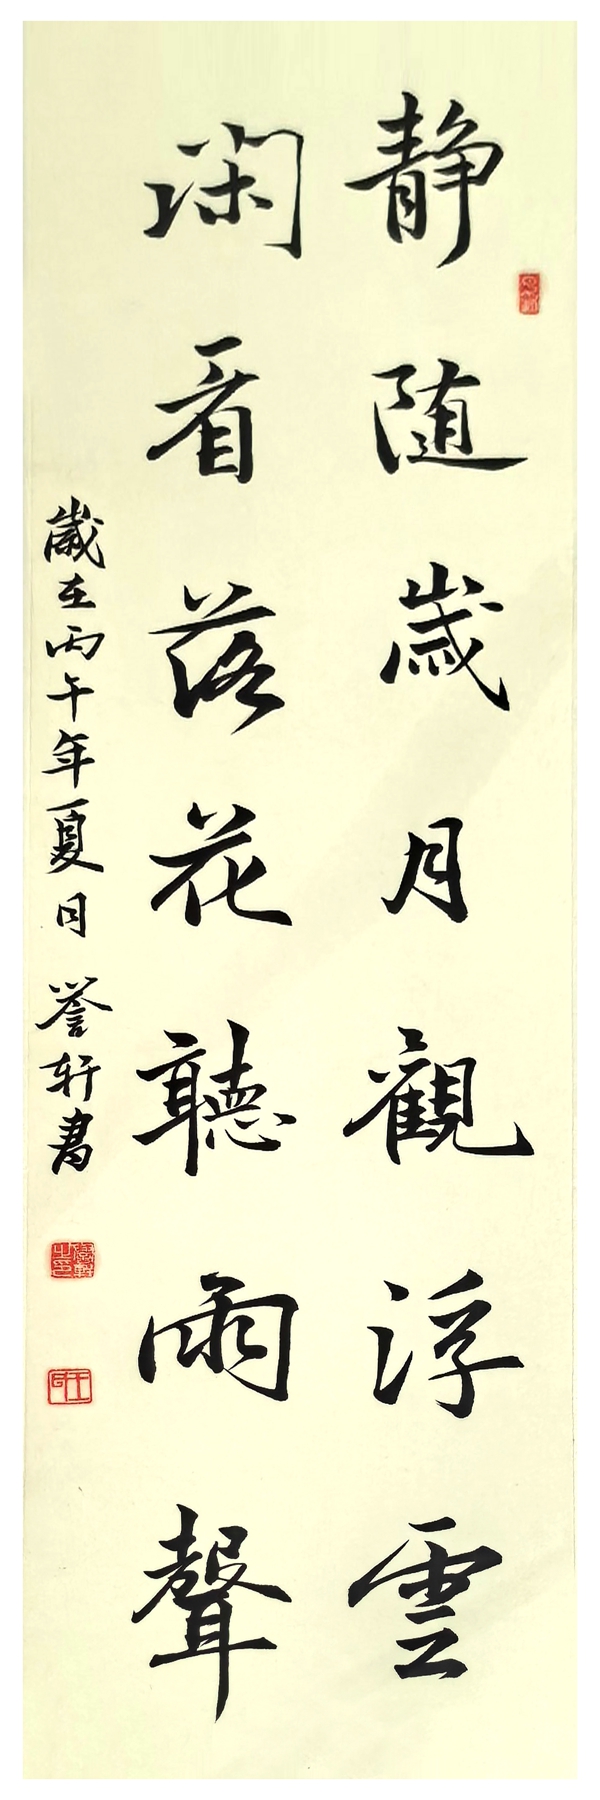 静随歲月觀浮雲
閑看落花聽雨聲
歲在丙午年夏日 誉轩書